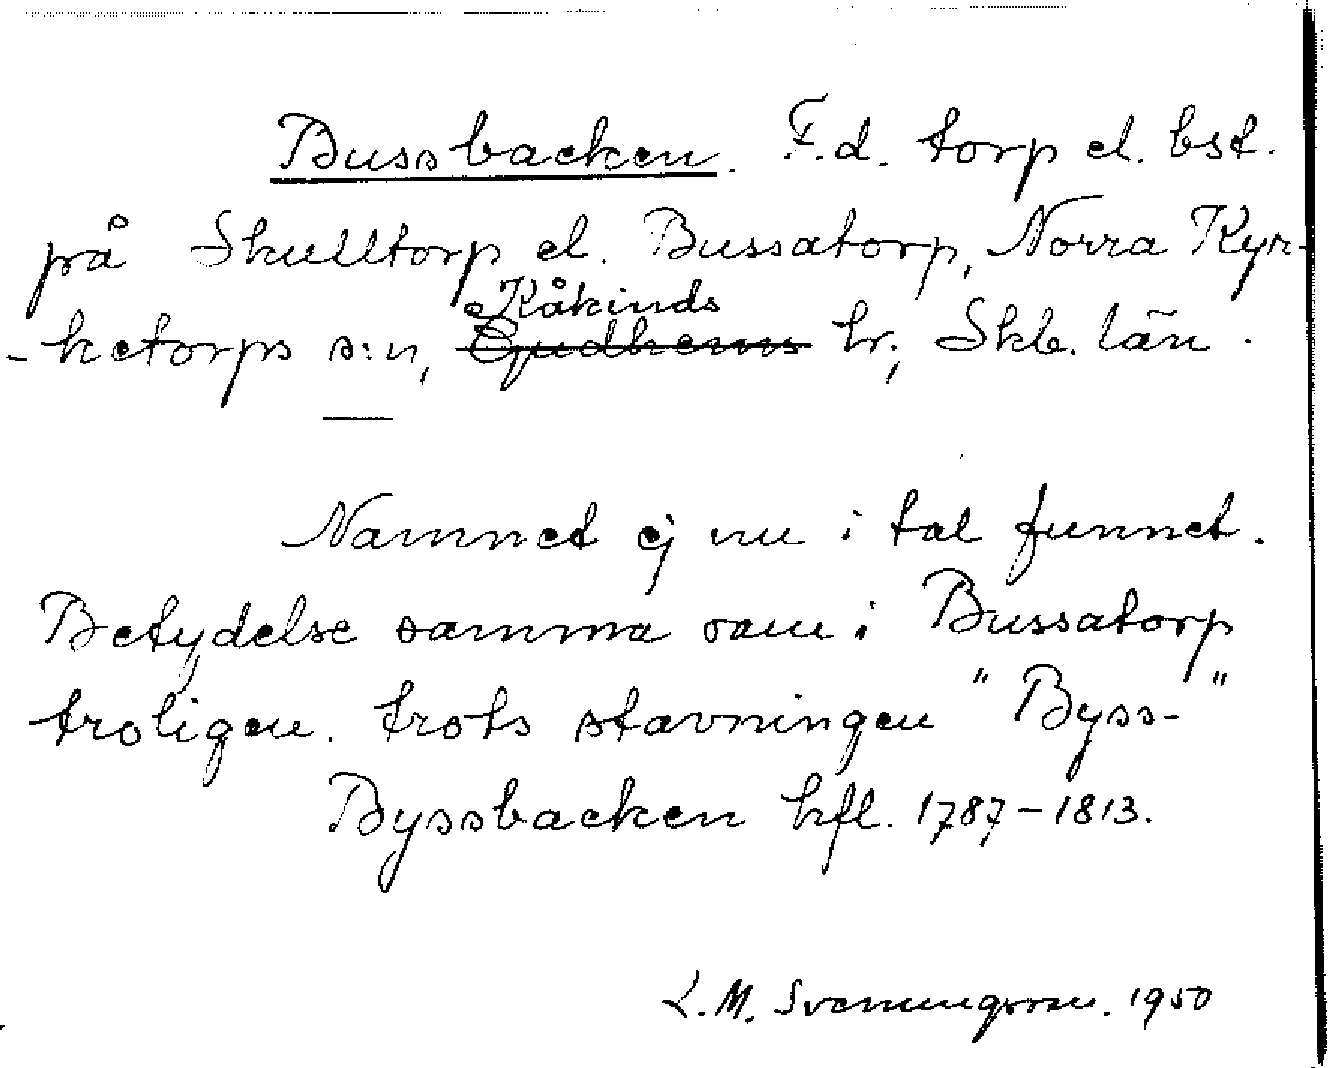 Bussbacken. F.d. torp el. bst.
på Skulltorp el. Bussatorp, Norra Kyr-
Kåkinds
-ketorps s:n, Gudhems hr, Skb. län.
Namnet ej nu i tal funnet.
Betydelse samma som i Bussatorp
troligen. trots stavningen "Byss-"
Byssbacken hfl. 1787-1813.
L. M. Svenungsson. 1950